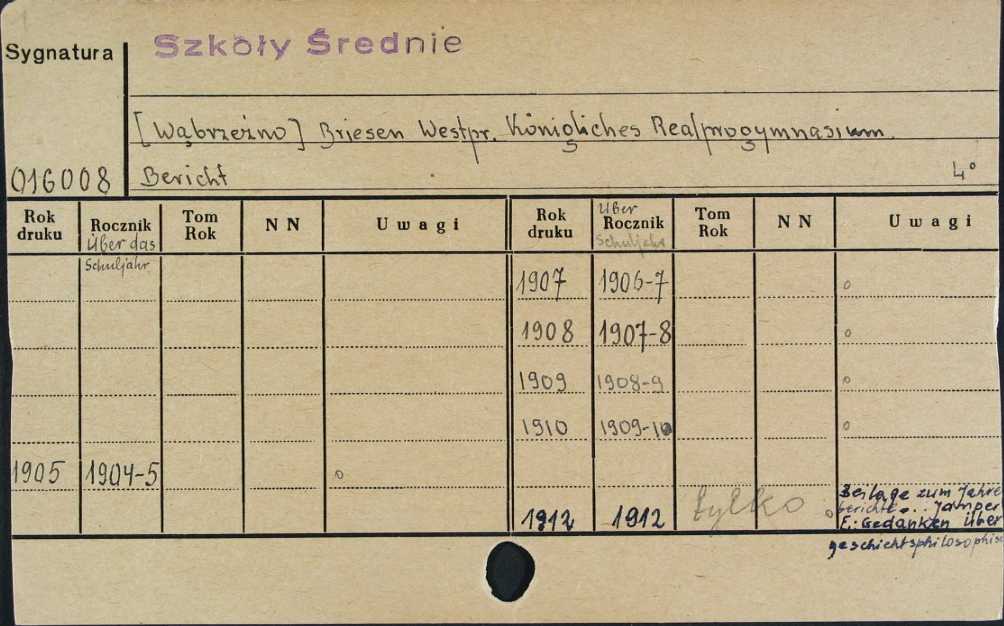 Szkoły Średnie
Sygnatura
[Wąbrzeźno] Briesen Westpr. Königliches Realprogymnasium.
016008 Bericht 4°
Rok druku Rocznik Über das Schuljahr Tom Rok NN Uwagi Rok druku Über Rocznik Schuljahr Tom Rok NN Uwagi
1907 1906-7 o
1908 1907-8 o
1909 1908-9 o
1910 1909-10 o
1905 1904-5 o
1912 1912 tylko o Beilage zum Jahre
berichte... Jamper
E.: Gedanken über
geschichtsphilosophisc